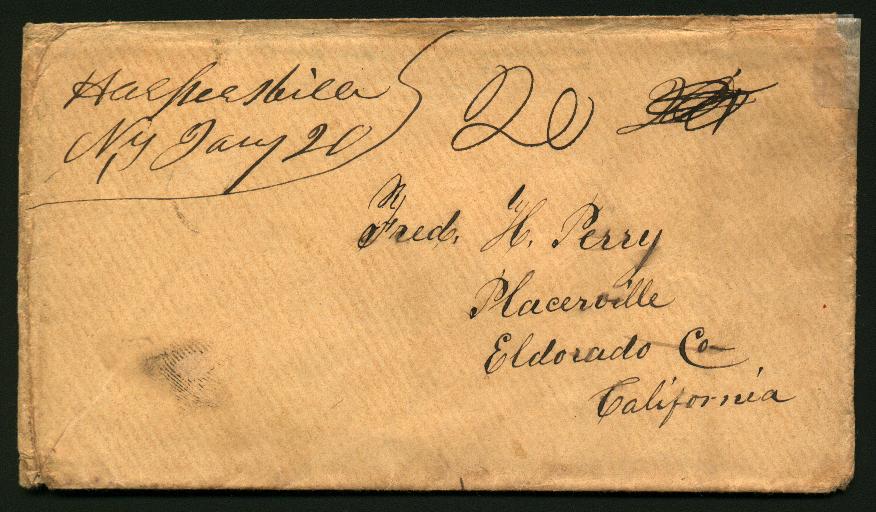 Harpersville
NY Jany 20
20
Fred. H. Perry
Placerville
Eldorado Co
California